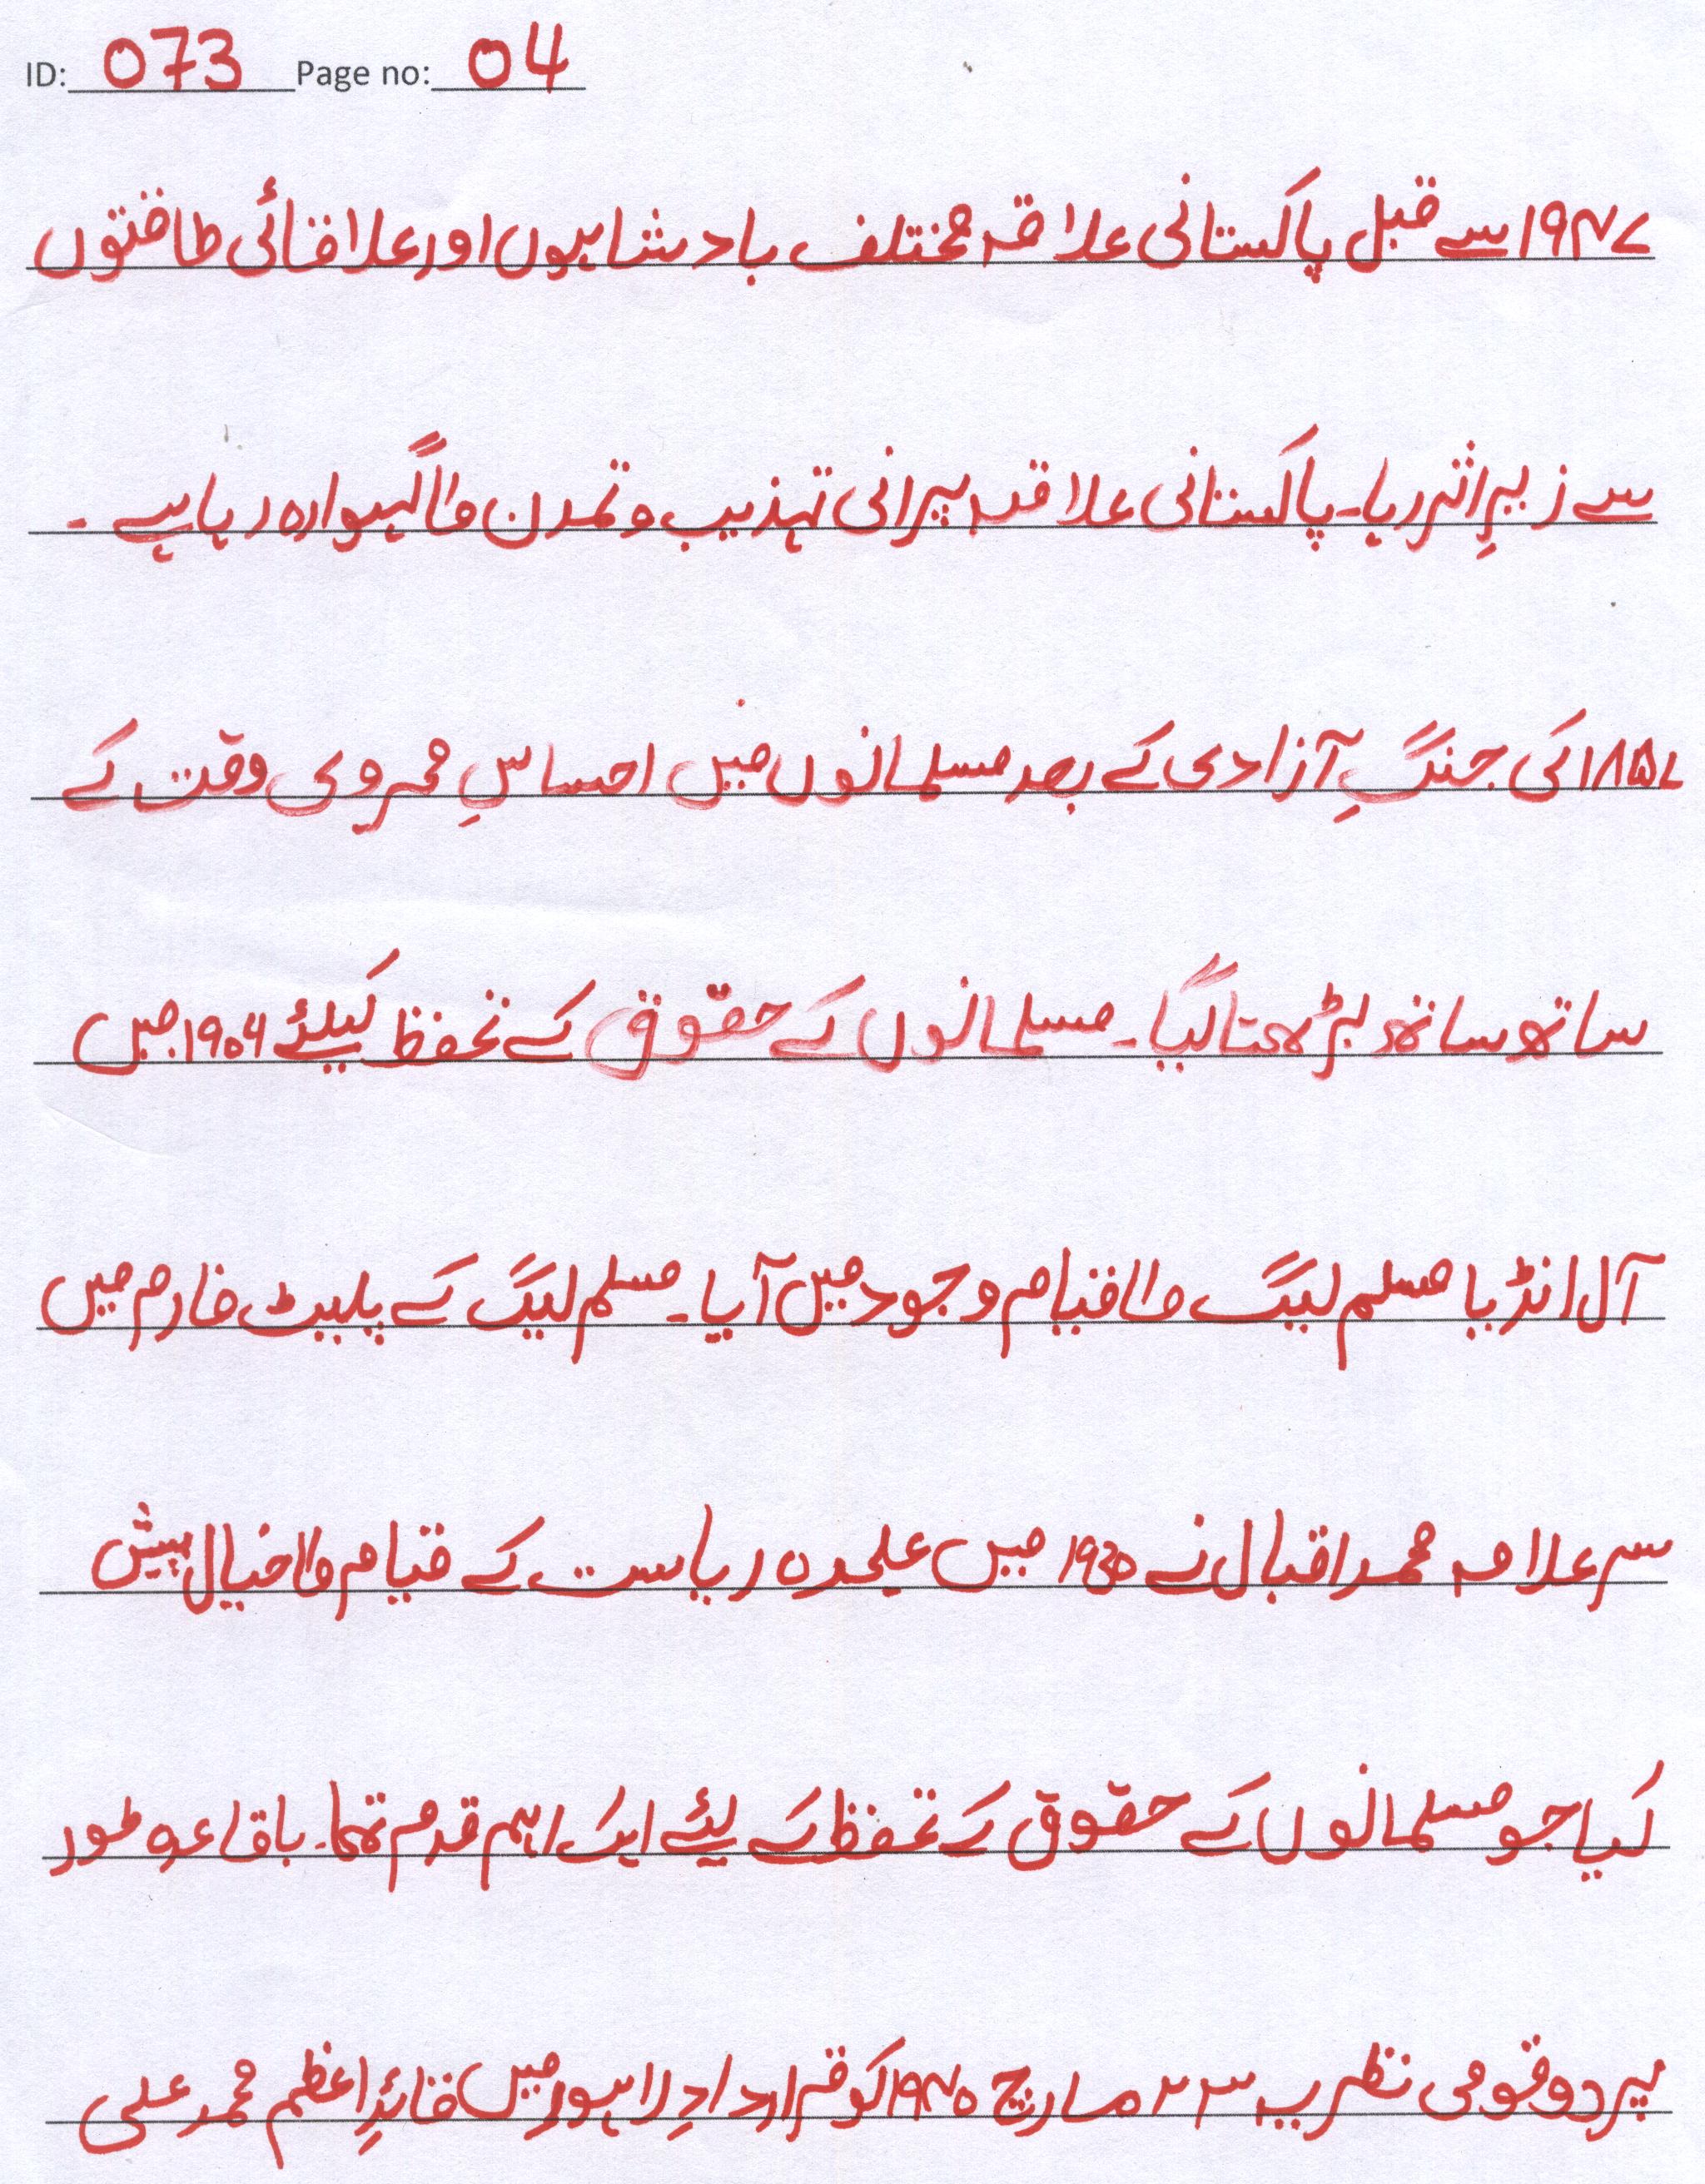 ID: 073 Page no: 04
۱۹۴۷ سے قبل پاکستانی علاقہ مختلف بادشاہوں اور علاقائی طاقتوں
سے زیرِ اثر رہا۔ پاکستانی علاقہ پرانی تہذیب و تمدن کا گہوارہ رہا ہے۔
۱۸۵۷ کی جنگِ آزادی کے بعد مسلمانوں میں احساسِ محرومی وقت کے
ساتھ ساتھ بڑھتا گیا۔ مسلمانوں کے حقوق کے تحفظ کیلئے ۱۹۰۶ میں
آل انڈیا مسلم لیگ کا قیام وجود میں آیا۔ مسلم لیگ کے پلیٹ فارم میں
سر علامہ محمد اقبال نے 1930 میں علیحدہ ریاست کے قیام کا خیال پیش
کیا جو مسلمانوں کے حقوق کے تحفظ کے لیئے ایک اہم قدم تھا۔ باقاعدہ طور
پر دو قومی نظریہ ۲۳ مارچ ۱۹۴۰ کو قراردادِ لاہور میں قائدِ اعظم محمد علی